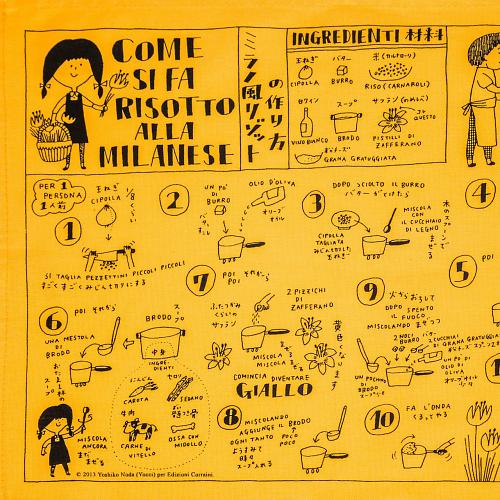 COME
SI FA
RISOTTO
ALLA
MILANESE
ミラノ風リゾット
の作り方
INGREDIENTI 材料
玉ねぎ
CIPOLLA
バター
BURRO
米(カルナローリ)
RISO (CARNAROLI)
白ワイン
VINO BIANCO
スープ
BRODO
サフラン(めしべ)
QUESTO
PISTILLI DI
ZAFFERANO
粉チーズ
GRANA GRATUGGIATA
PER 1
PERSONA
1人前
1
玉ねぎ
CIPOLLA
1/8くらい
SI TAGLIA PEZZETTINI PICCOLI PICCOLI
すごくすごくみじんぎりにする
2
UN PO'
DI
BURRO
バター
OLIO D'OLIVA
オリーブ
オイル
3
DOPO SCIOLTO IL BURRO
バターがとけたら
CIPOLLA
TAGLIATA
みじんぎりした
玉ねぎ
MISCOLA
CON
IL CUCCHIAIO
DI LEGNO
木のスプーンで
まぜる
4
5
POI
6
POI それから
UNA MESTOLA
DI
BRODO
BRODO
スープ
中身
INGRE-
DIENTI
にんじん
CAROTA
セロリ
SEDANO
牛肉
CARNE
DI
VITELLO
OSSA CON
MIDOLLO
MISCOLA
ANCORA
まだ
まぜる
7
POI それから
POI
ふたつかみ
くらいの
サフラン
2 PIZZICHI
DI
ZAFFERANO
MISCOLA
MISCOLA
まぜる
まぜる
黄色くなります
COMINCIA DIVENTARE
GIALLO
8
MISCOLANDO
AGGIUNGE IL BRODO
OGNI TANTO
POCO
POCO
ようすみて
時々
スープ入れる
9
火からおろして
DOPO
SPENTO
IL FUOCO
MISCOLANDO まぜつつ
2 NOCI
BURRO
バター
2 CUCCHIAI
DI GRANA GRATUGGIATA
粉チーズ
UN PO DI
OLIO DI
OLIVA
オリーブオイル
UN POCHINO
DI
BRODO
スープ
10
FA L'ONDA
くるってやる
© 2013 Yoshiko Noda (Yocci) per Edizioni Corraini.